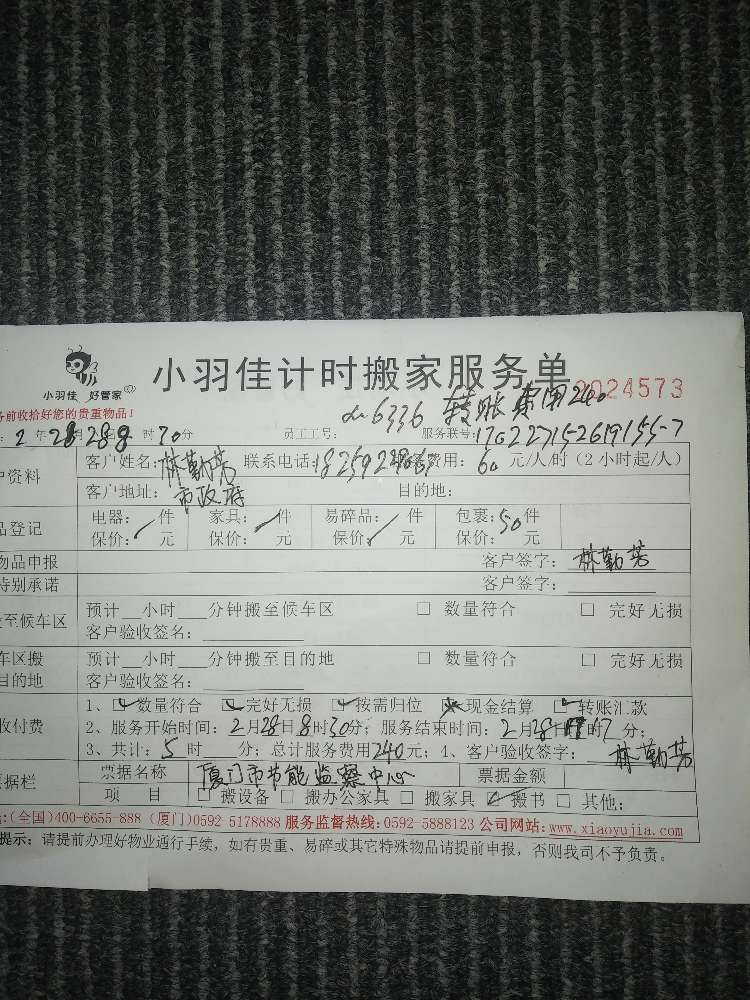 小羽佳 好管家
小羽佳计时搬家服务单
0024573
务前收拾好您的贵重物品!
6336 转账 费用240
: 2年2月28日8时30分 员工工号: 服务联号:
户资料 客户姓名: 林勤芳 联系电话: 费用: 60 元/人/时(2小时起/人)
客户地址: 市政府 目的地:
品登记 电器: 件 家具: 件 易碎品: 件 包裹: 50 件
保价: 元 保价: 元 保价: 元 保价: 元
物品申报 客户签字: 林勤芳
特别承诺 客户签字:
至候车区 预计__小时___分钟搬至候车区 □ 数量符合 □ 完好无损
客户验收签名:
车区搬 预计__小时___分钟搬至目的地 □ 数量符合 □ 完好无损
目的地 客户验收签名:
1、☑数量符合 ☑完好无损 ☑按需归位 现金结算 ☑转账汇款
收付费 2、服务开始时间: 2月28日8时30分; 服务结束时间: 2月28日 时 分;
3、共计: 5 时 分; 总计服务费用240元; 4、客户验收签字: 林勤芳
票据名称 厦门市节能监察中心 票据金额
据栏 项 目 □ 搬设备 □ 搬办公家具 □ 搬家具 ☑ 搬书 □ 其他:
:(全国)400-6655-888 (厦门)0592-5178888 服务监督热线:0592-5888123 公司网站:www.xiaoyujia.com
提示: 请提前办理好物业通行手续, 如有贵重、易碎或其它特殊物品请提前申报, 否则我司不予负责。